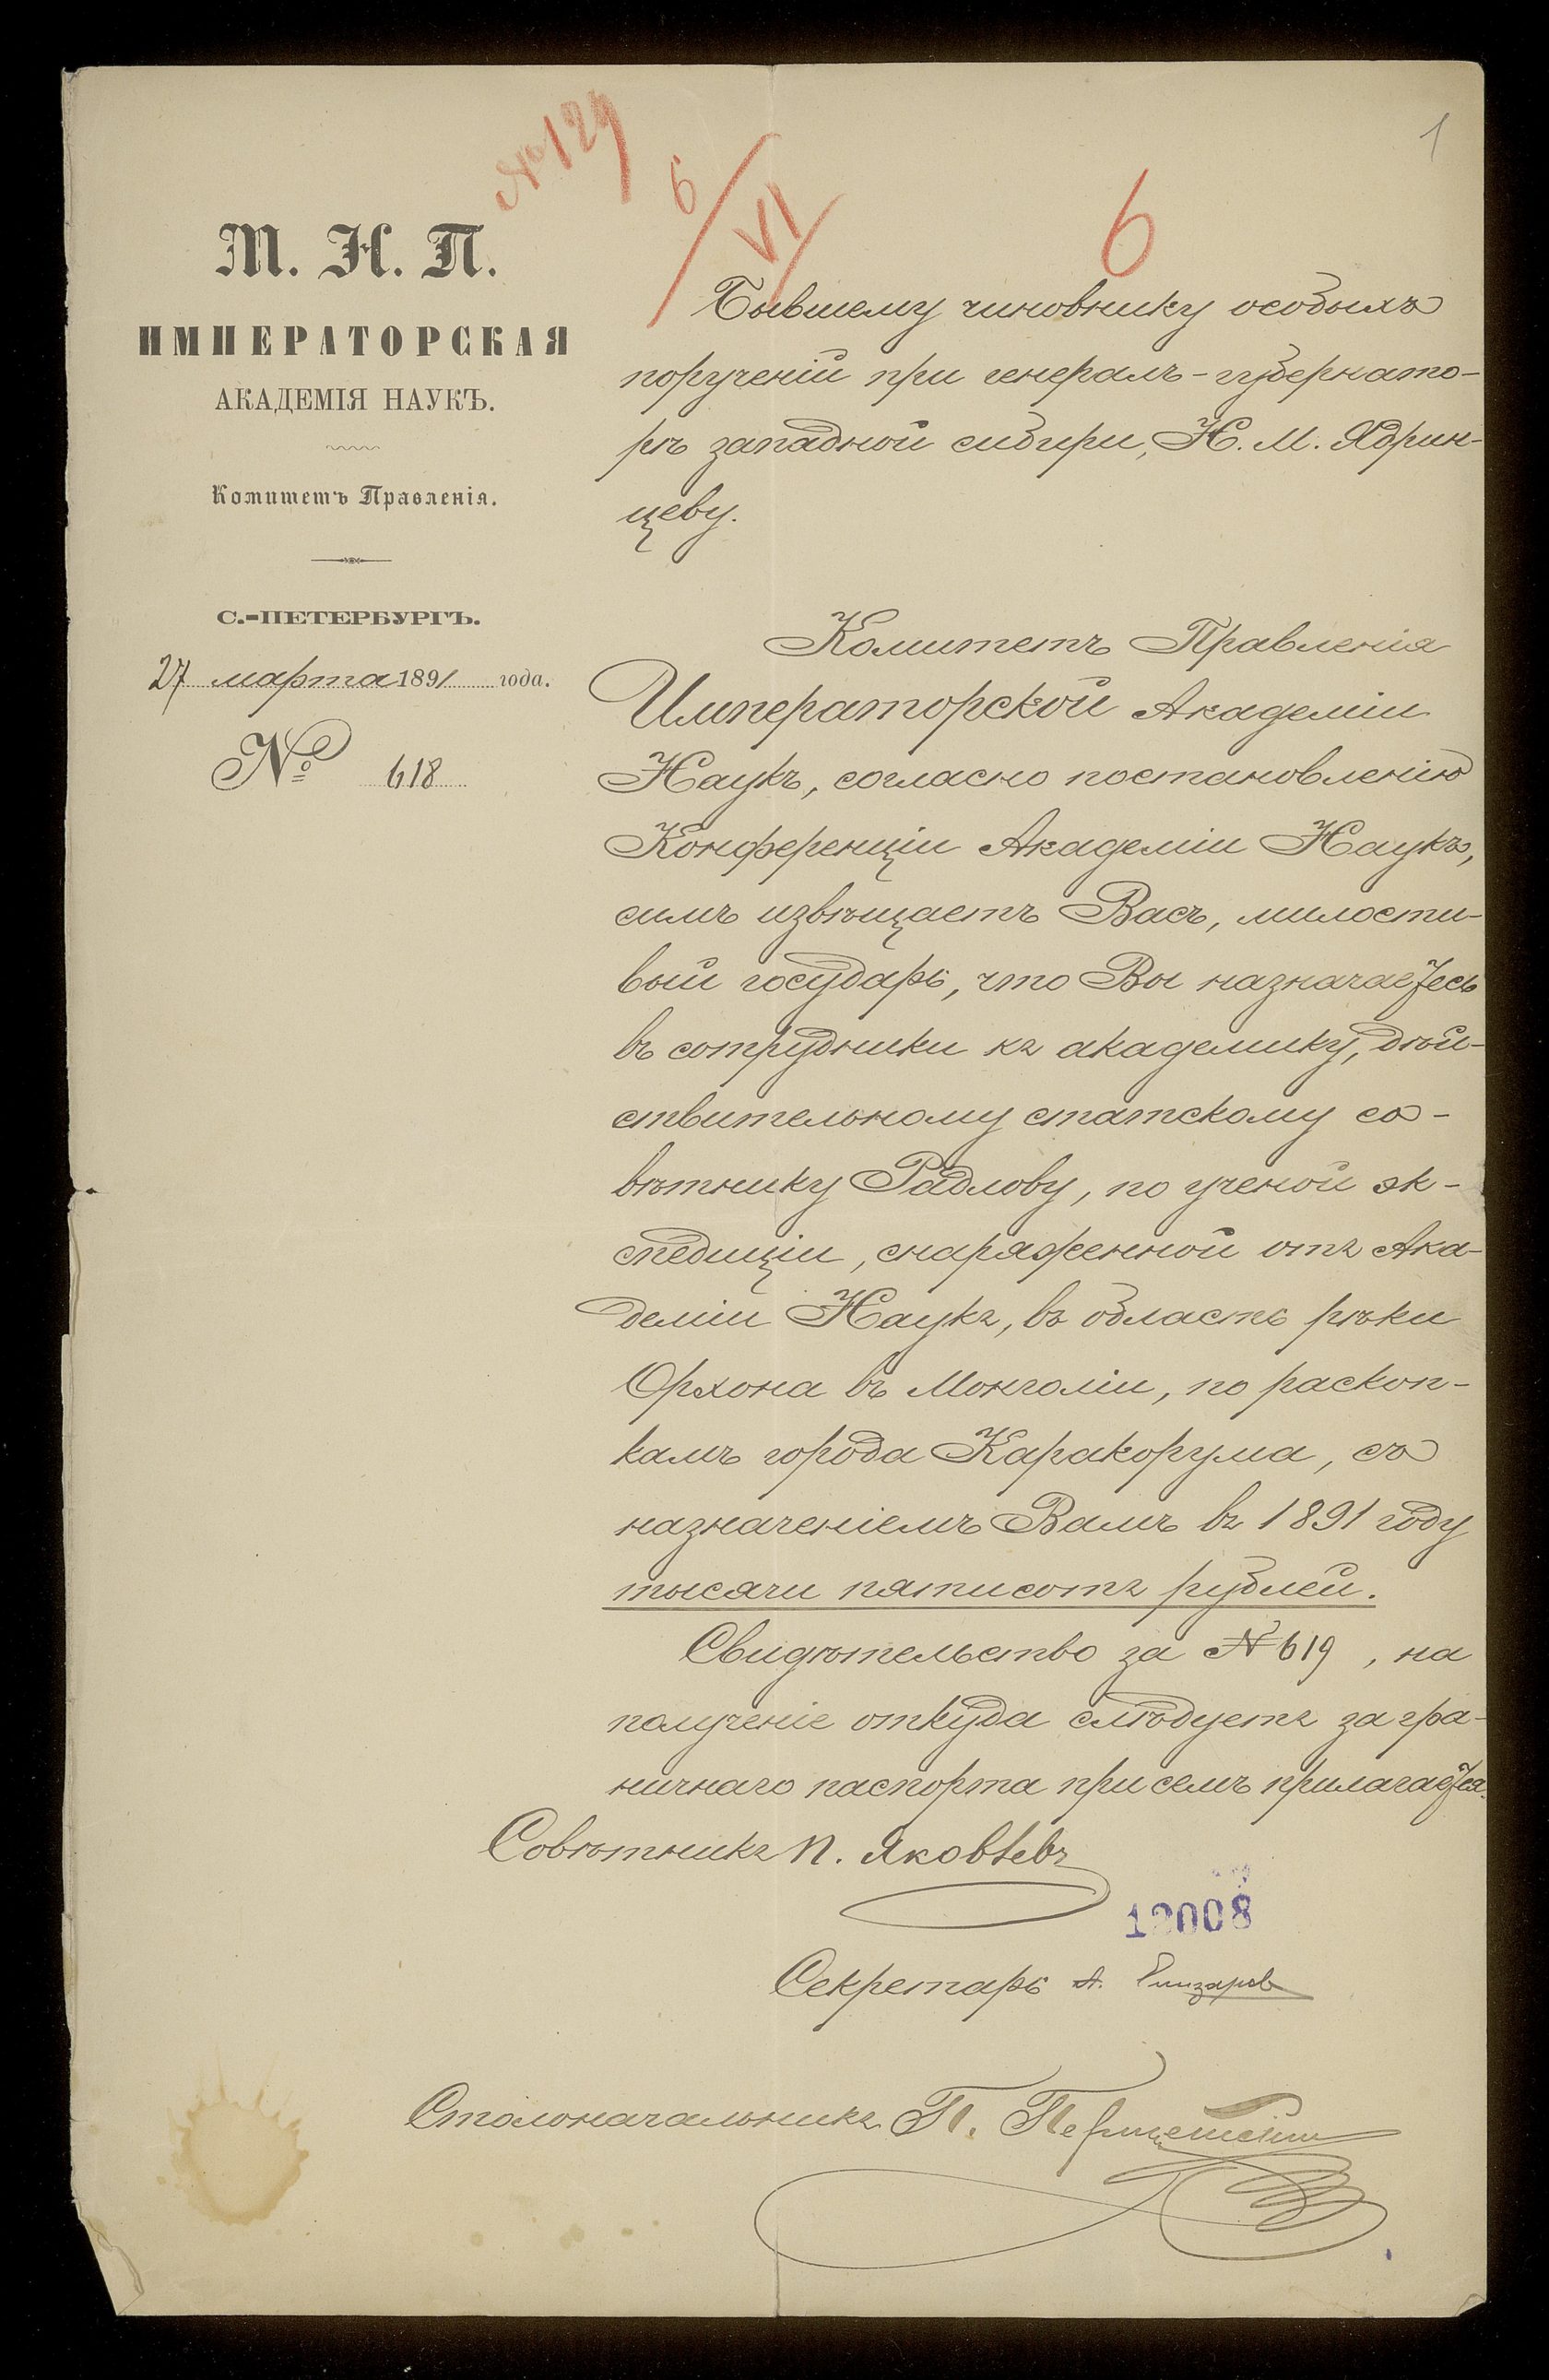 № 129
6/VI
6
1
М. Н. П.
ИМПЕРАТОРСКАЯ
АКАДЕМІЯ НАУКЪ.
Комитетъ Правленія.
С.-ПЕТЕРБУРГЪ.
27 марта 1891 года.
№ 618
Бывшему чиновнику особыхъ
порученій при генералъ-губернато-
рѣ западной сибири, Н. М. Ядрин-
цеву.
Комитетъ Правленія
Императорской Академіи
Наукъ, согласно постановленію
Конференціи Академіи Наукъ,
симъ извѣщаетъ Васъ, милости-
вый государь, что Вы назначаетесь
въ сотрудники къ академику, дѣй-
ствительному статскому со-
вѣтнику Радлову, по ученой эк-
спедиціи, снаряженной отъ Ака-
деміи Наукъ, въ область рѣки
Орхона въ Монголіи, по раскоп-
камъ города Каракорума, съ
назначеніемъ Вамъ въ 1891 году
тысячи пятисотъ рублей.
Свидѣтельство за № 619, на
полученіе откуда слѣдуетъ загра-
ничнаго паспорта при семъ прилагается.
Совѣтникъ П. Яковлевъ
12008
Секретарь А.
Столоначальникъ П.